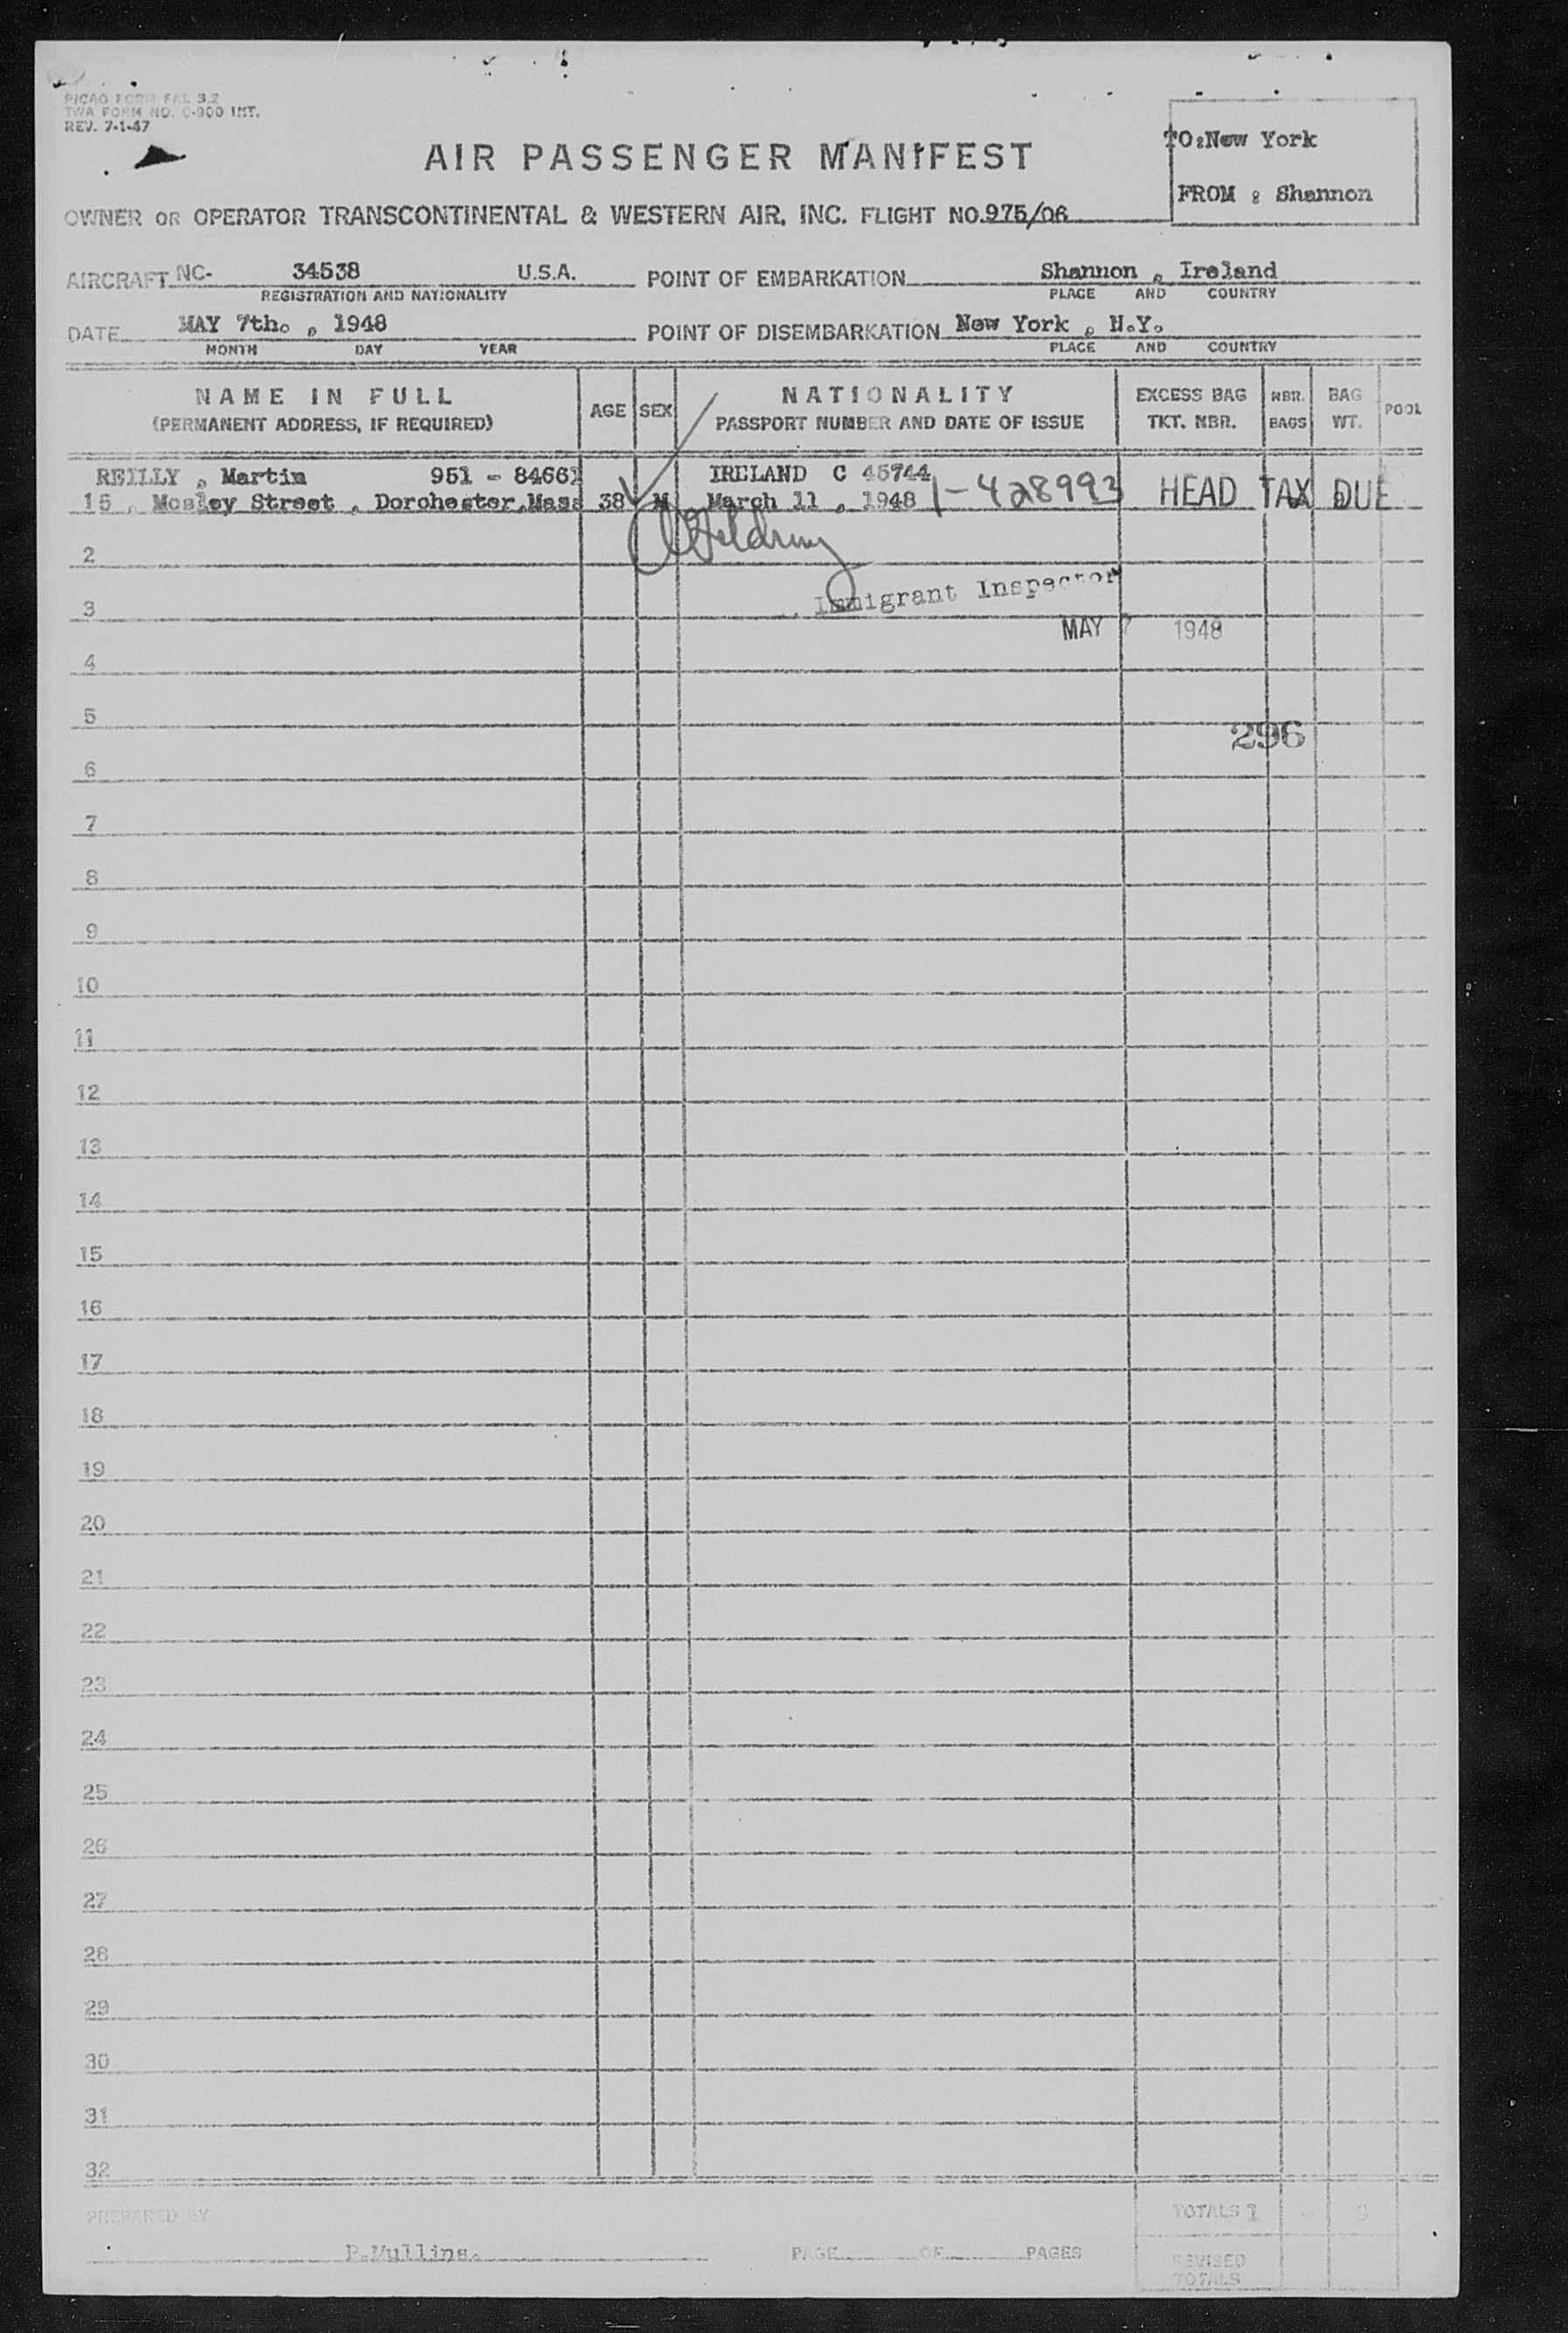 PICAO FORM FAL 3.2
TWA FORM NO. O-900 INT.
REV. 7-1-47
AIR PASSENGER MANIFEST
TO:New York
FROM : Shannon
OWNER OR OPERATOR TRANSCONTINENTAL & WESTERN AIR, INC. FLIGHT NO.975/06
AIRCRAFT NC- 34538 U.S.A. POINT OF EMBARKATION Shannon , Ireland
REGISTRATION AND NATIONALITY PLACE AND COUNTRY
DATE MAY 7th. , 1948 POINT OF DISEMBARKATION New York , N.Y.
MONTH DAY YEAR PLACE AND COUNTRY
NAME IN FULL
(PERMANENT ADDRESS, IF REQUIRED)
AGE
SEX
NATIONALITY
PASSPORT NUMBER AND DATE OF ISSUE
EXCESS BAG
TKT. NBR.
NBR.
BAGS
BAG
WT.
POOL
REILLY , Martin 951 - 84661 IRELAND C 45744
15 , Mosley Street , Dorchester,Mass 38 M March 11 , 1948 1-428993 HEAD TAX DUE
2
Immigrant Inspector
3
MAY 7 1948
4
5
296
6
7
8
9
10
11
12
13
14
15
16
17
18
19
20
21
22
23
24
25
26
27
28
29
30
31
32
PREPARED BY
TOTALS 1
P.Mullins.
PAGE OF PAGES
REVISED
TOTALS